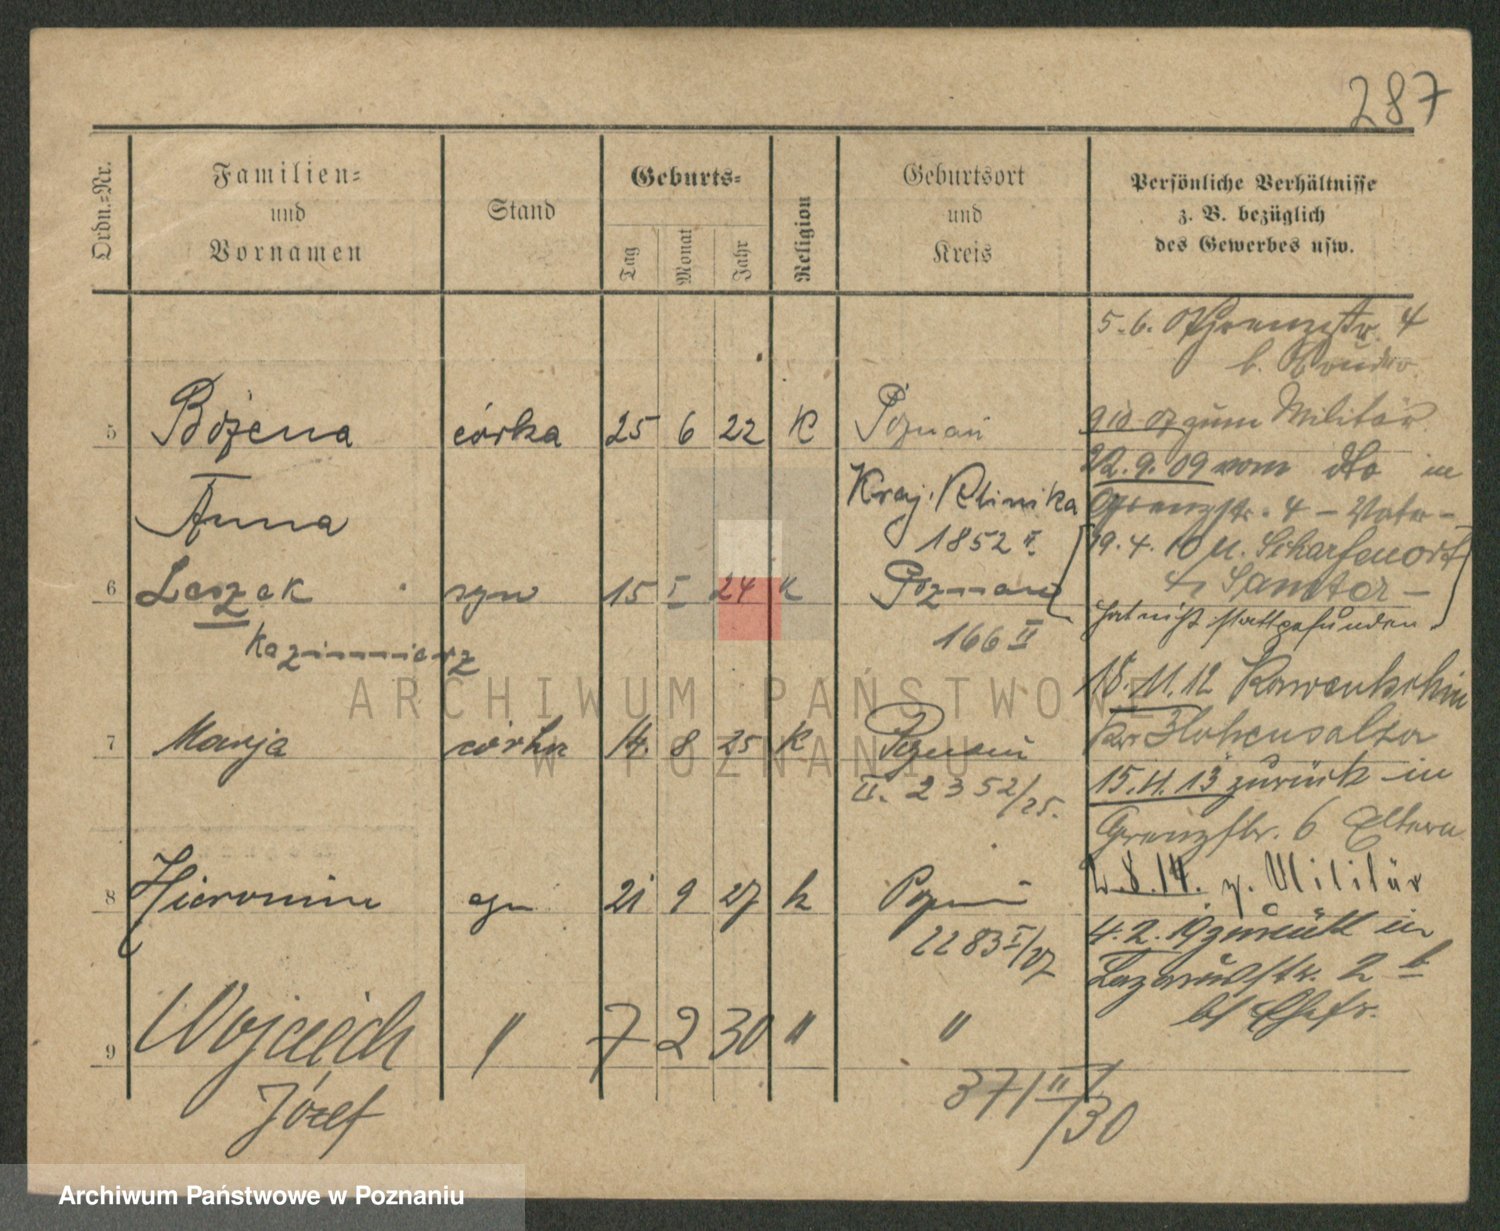 287
Ordn.-Nr.
Familien-
und
Vornamen
Stand
Geburts-
Tag
Monat
Jahr
Religion
Geburtsort
und
Kreis
Persönliche Verhältnisse
z. B. bezüglich
des Gewerbes usw.
5.6. 07 Grenzstr. 4
b.
5 Bożena córka 25 6 22 K Poznań
9 10 07 zum Militär
Anna
Kraj. Klinika
1852 II.
22.9.09 vom dto in
Grenzstr. 4 - Vater -
19.4.10 n. Scharfenort
6 Leszek syn 15 I 24 K Poznań
Kazimierz
166 II
hat nicht stattgefunden.
18.11.12
Kr Hohensalza
7 Marja córka 14. 8 25 K Poznań
II. 2352/25.
15.11.13 zurück in
Grenzstr. 6 Eltern
8 Hieronim syn 21 9 27 k Poznań
2283 I/27
2.8.14. z. Militär
4.2.19 zurück in
Lazarusstr. 2 b
b/ Ehefr.
9 Wojciech " 7 2 30 " "
Józef
371 II/30
ARCHIWUM PAŃSTWOWE
W POZNANIU
Archiwum Państwowe w Poznaniu